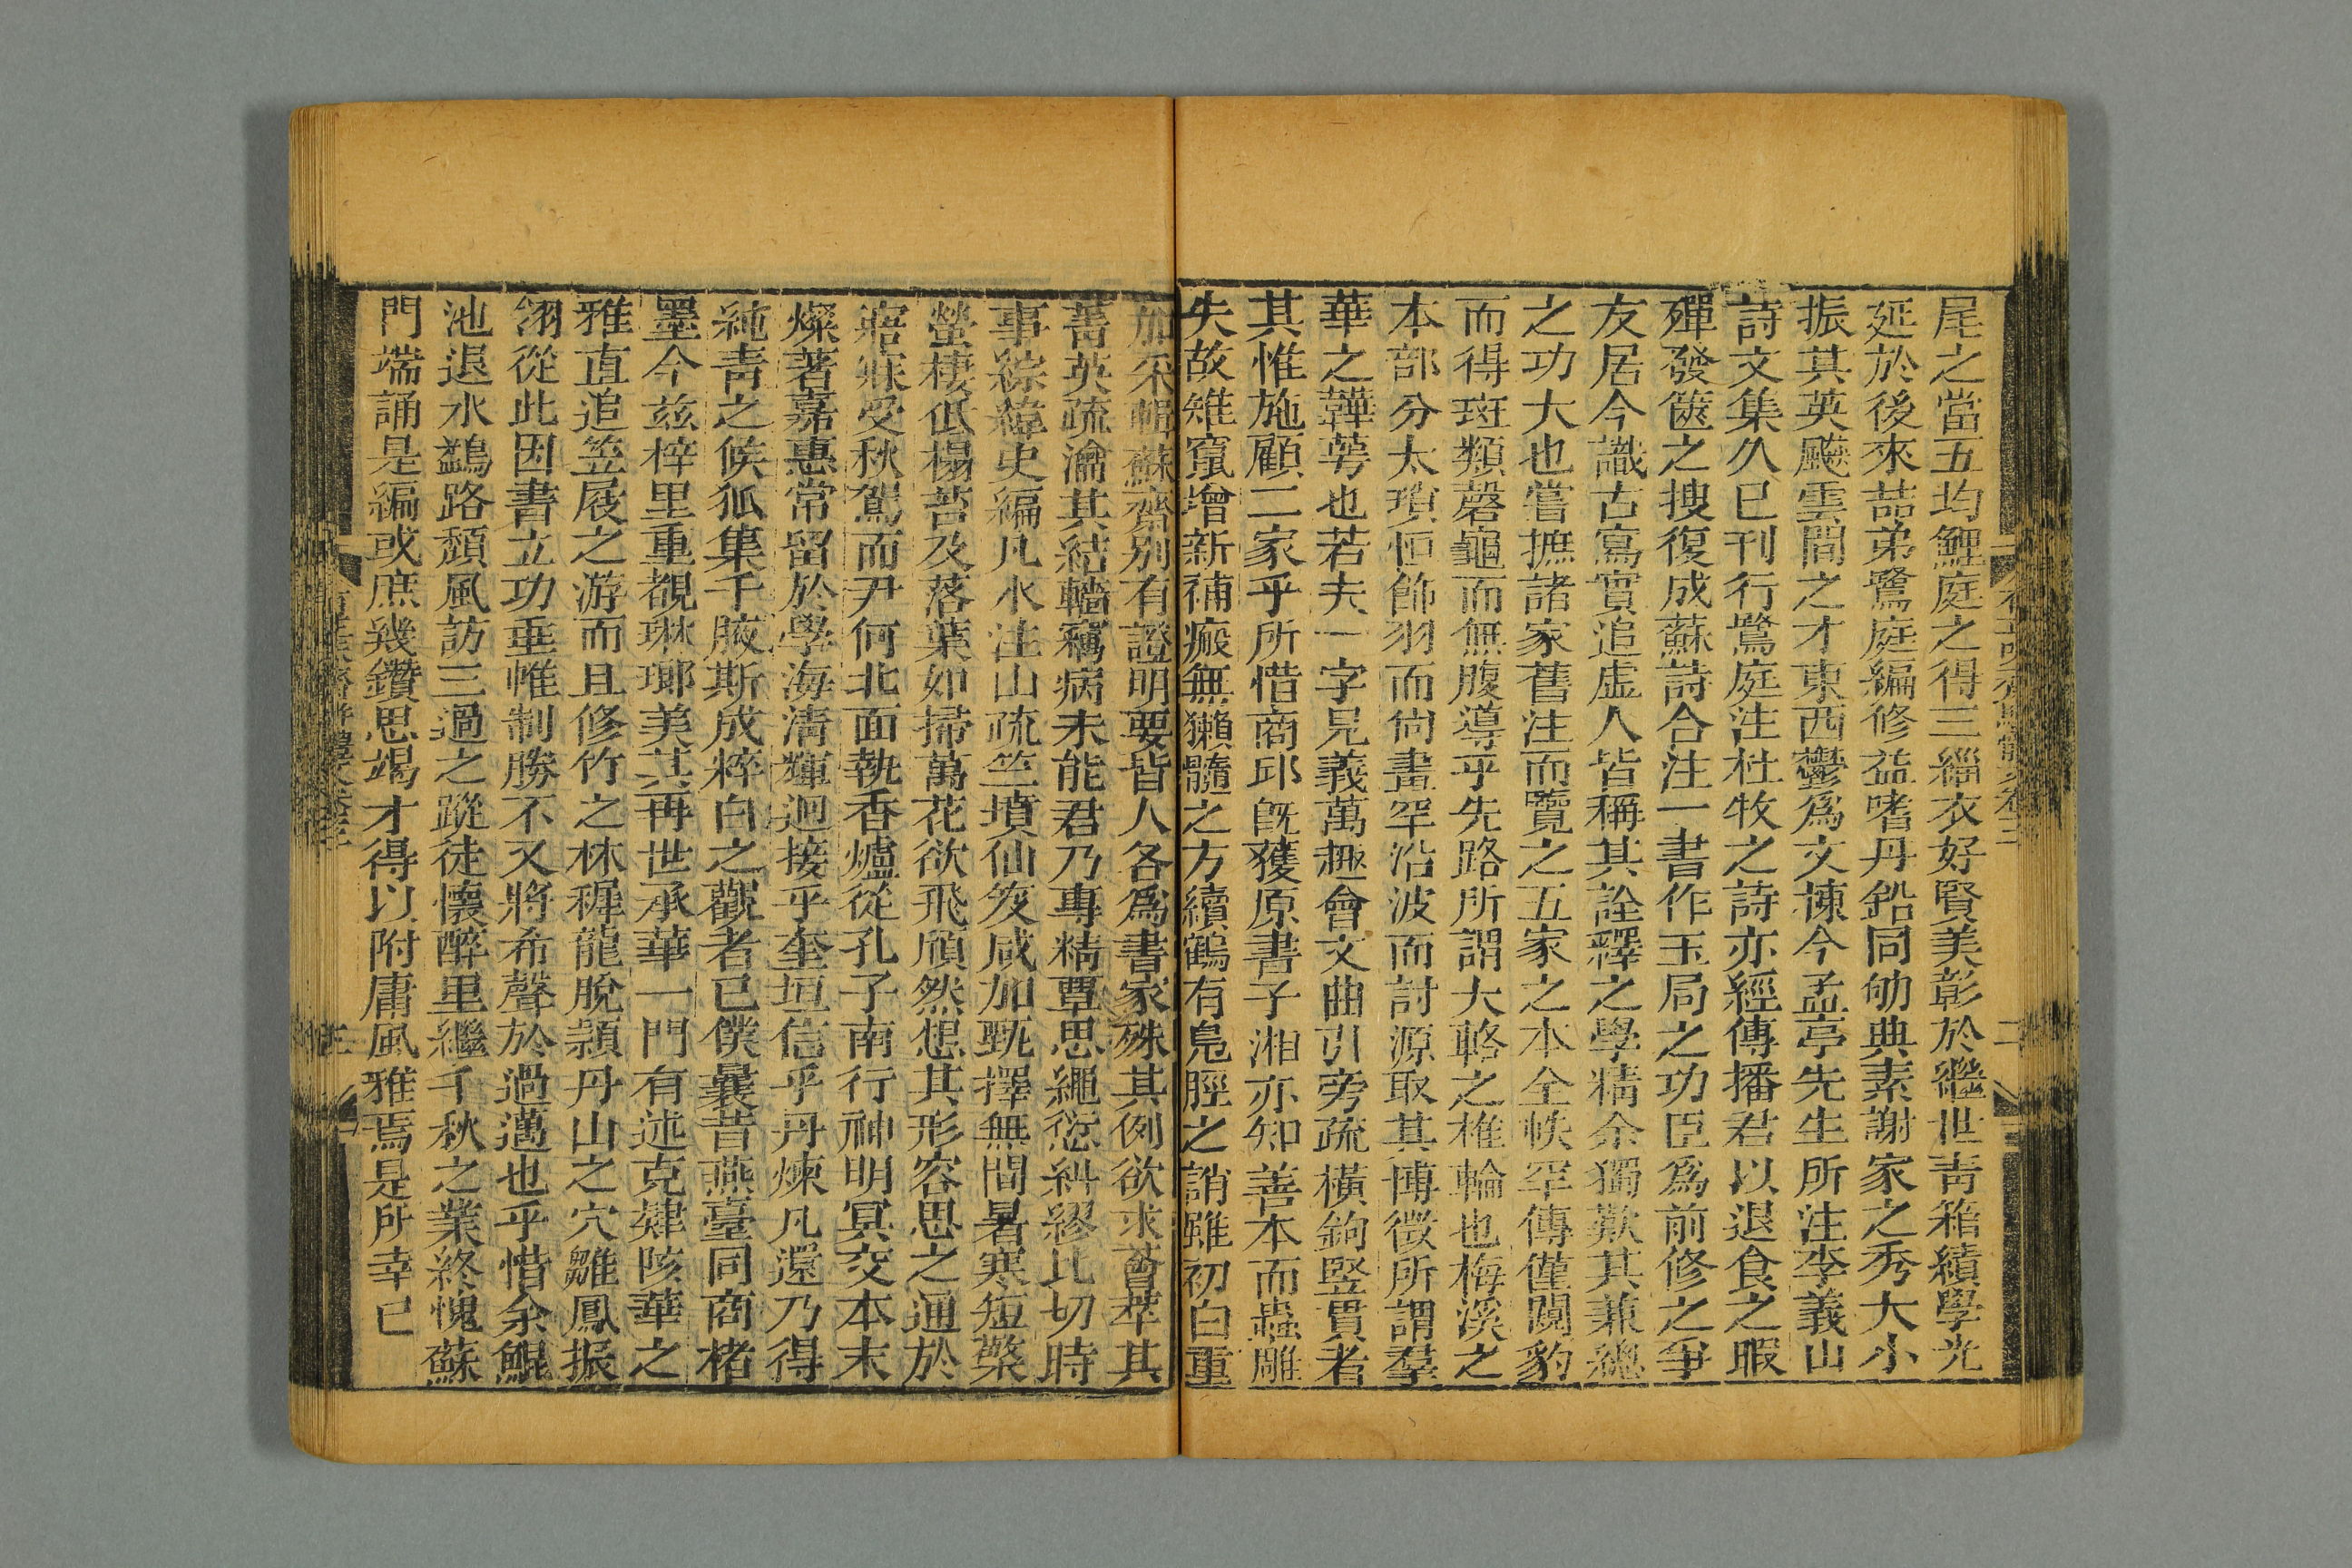 尾之當五均鯉庭之得三緇衣好賢美彰於繼世靑箱績學光
延於後來喆弟鷺庭編修益嗜丹鉛同劬典素謝家之秀大小
振其英颷雲間之才東西鬱爲文棟今孟亭先生所注李義山
詩文集久已刊行鷺庭注杜牧之詩亦經傳播君以退食之暇
殫發篋之搜復成蘇詩合注一書作玉局之功臣爲前修之爭
友居今識古寫實追虛人皆稱其詮釋之學精余獨歎其兼總
之功大也嘗摭諸家舊注而覽之五家之本全帙罕傳僅闚豹
而得斑類磬龜而無腹導乎先路所謂大輅之椎輪也梅溪之
本部分太瑣恒飾羽而尙畫罕沿波而討源取其博徵所謂羣
華之韡萼也若夫一字見義萬趣會文曲引旁疏橫鉤豎貫者
其惟施顧二家乎所惜商邱旣獲原書子湘亦知善本而蟲雕
失故雉竄增新補瘢無獺髓之方續鶴有鳬脛之誚雖初白重
加采輯蘇齋別有證明要皆人各爲書家殊其例欲求薈萃其
菁英疏瀹其結轖竊病未能君乃專精覃思繩愆糾繆比切時
事綜緯史編凡水注山疏竺墳仙笈咸加甄擇無間暑寒短檠
螢棲低榻苔及落葉如掃萬花欲飛頎然想其形容思之通於
寤寐受秋駕而尹何北面執香爐從孔子南行神明冥交本末
燦著嘉惠常留於學海淸輝迴接乎奎垣信乎丹煉凡還乃得
純靑之候狐集千腋斯成粹白之觀者已僕曩昔燕臺同商楮
墨今兹梓里重覩琳瑯美其再世承華一門有述克肄陔華之
雅直追笠屐之游而且修竹之林穉龍脫頴丹山之穴雛鳳振
翎從此因書立功垂帷制勝不又將希聲於過邁也乎惜余鯤
池退水鷁路頹風訪三過之蹤徒懷醉里繼千秋之業終愧蘇
門端誦是編或庶幾鑽思竭才得以附庸風雅焉是所幸已